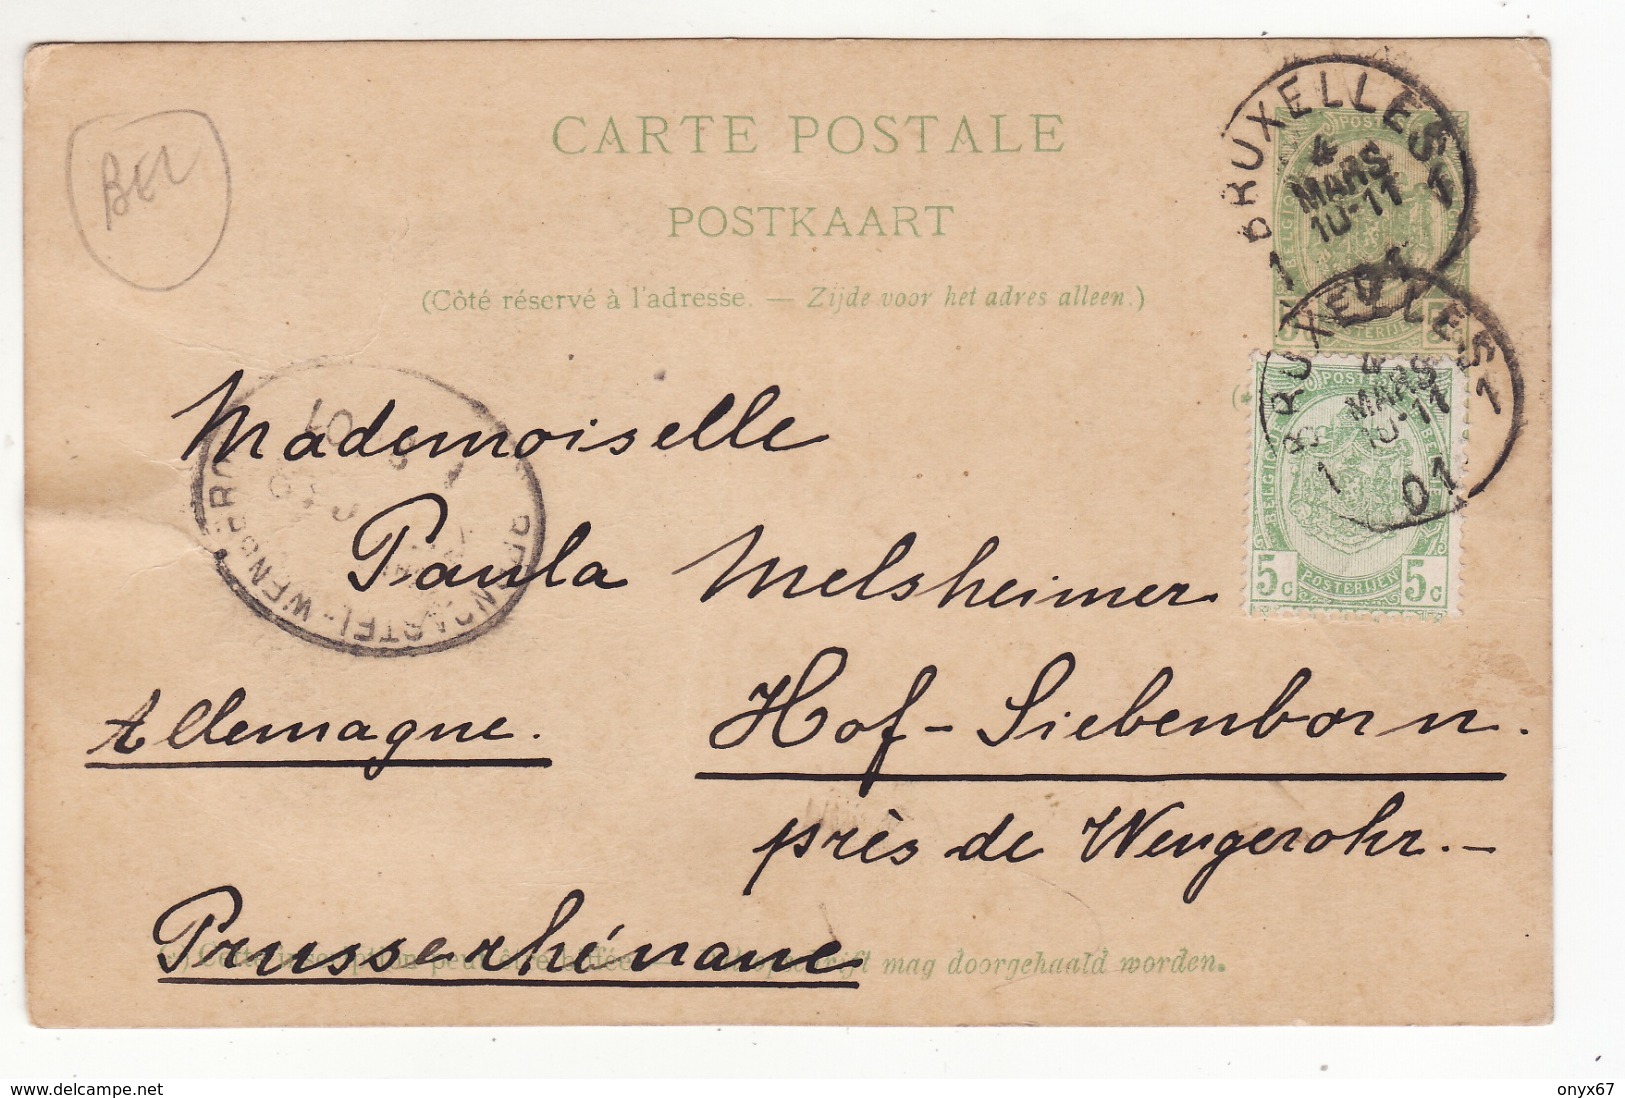 BEL
CARTE POSTALE
POSTKAART
(Côté réservé à l'adresse. — Zijde voor het adres alleen.)
BRUXELLES 1
4
MARS
10-11
1
POSTES
BELGIQUE
5
POSTERIJEN
5
BRUXELLES 1
4
MARS
10-11
1 01
POSTES
BELGIQUE
5c POSTERIJEN 5c
Mademoiselle
Paula Melsheimer
Allemagne.
Hof-Siebenborn.
près de Wengerohr.-
Prusse rhénane
mag doorgehaald worden.
delcampe.net
onyx67